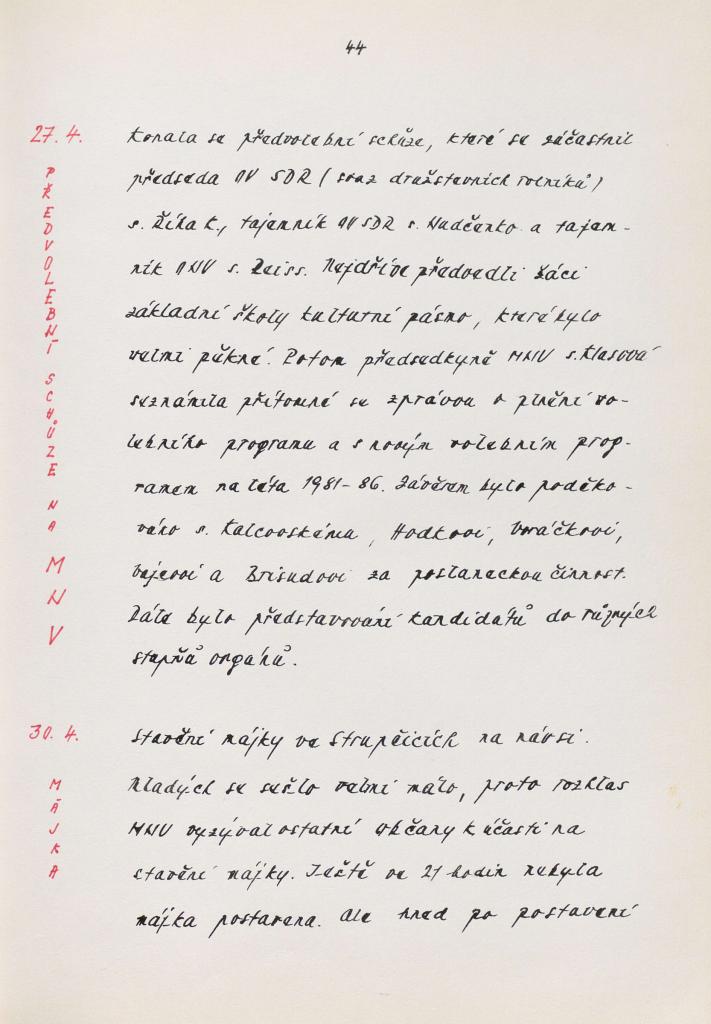 44
27. 4.
PŘEDVOLEBNÍ SCHŮZE NA MNV
Konala se předvolební schůze, které se záčastnil
předseda OV SDR (svaz družstevních rolníků)
s. Žihal, tajemník OV SDR s. Hudčenko a tajem-
ník ONV s. Zeiss. Nejdříve předvedli žáci
základní školy kulturní pásmo, které bylo
velmi pěkné. Potom předsedkyně MNV s. Klasová
seznámila přítomné se zprávou o plnění vo-
lebního programu a s novým volebním prog-
ramem na léta 1981-86. Závěrem bylo poděko-
váno s. Kalcovskému, Hodkovi, Voráčkovi,
Vajerovi a Brisudovi za poslaneckou činnost.
Dále bylo představování kandidátů do různých
stupňů orgánů.
30. 4.
MÁJKA
Stavění májky ve Strupčicích na návsi.
Mladých se sešlo velmi málo, proto rozhlas
MNV vyzýval ostatní občany k účasti na
stavění májky. Ještě ve 21 hodin nebyla
májka postavena. Ale hned po postavení